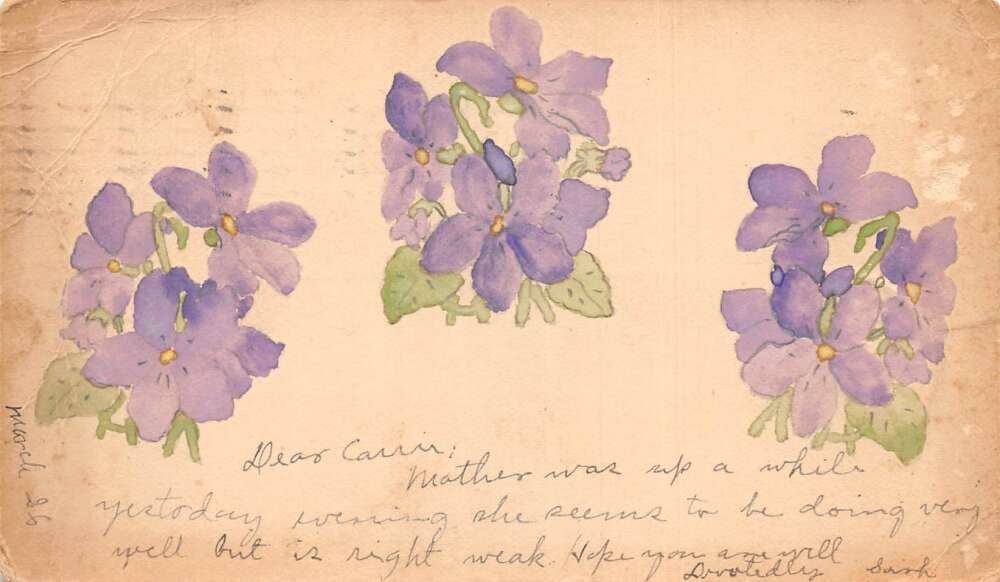 Dear Carrie;
Mother was up a while
yestoday evening she seems to be doing very
well but is right weak. Hope you are well
Devotedly
March 26